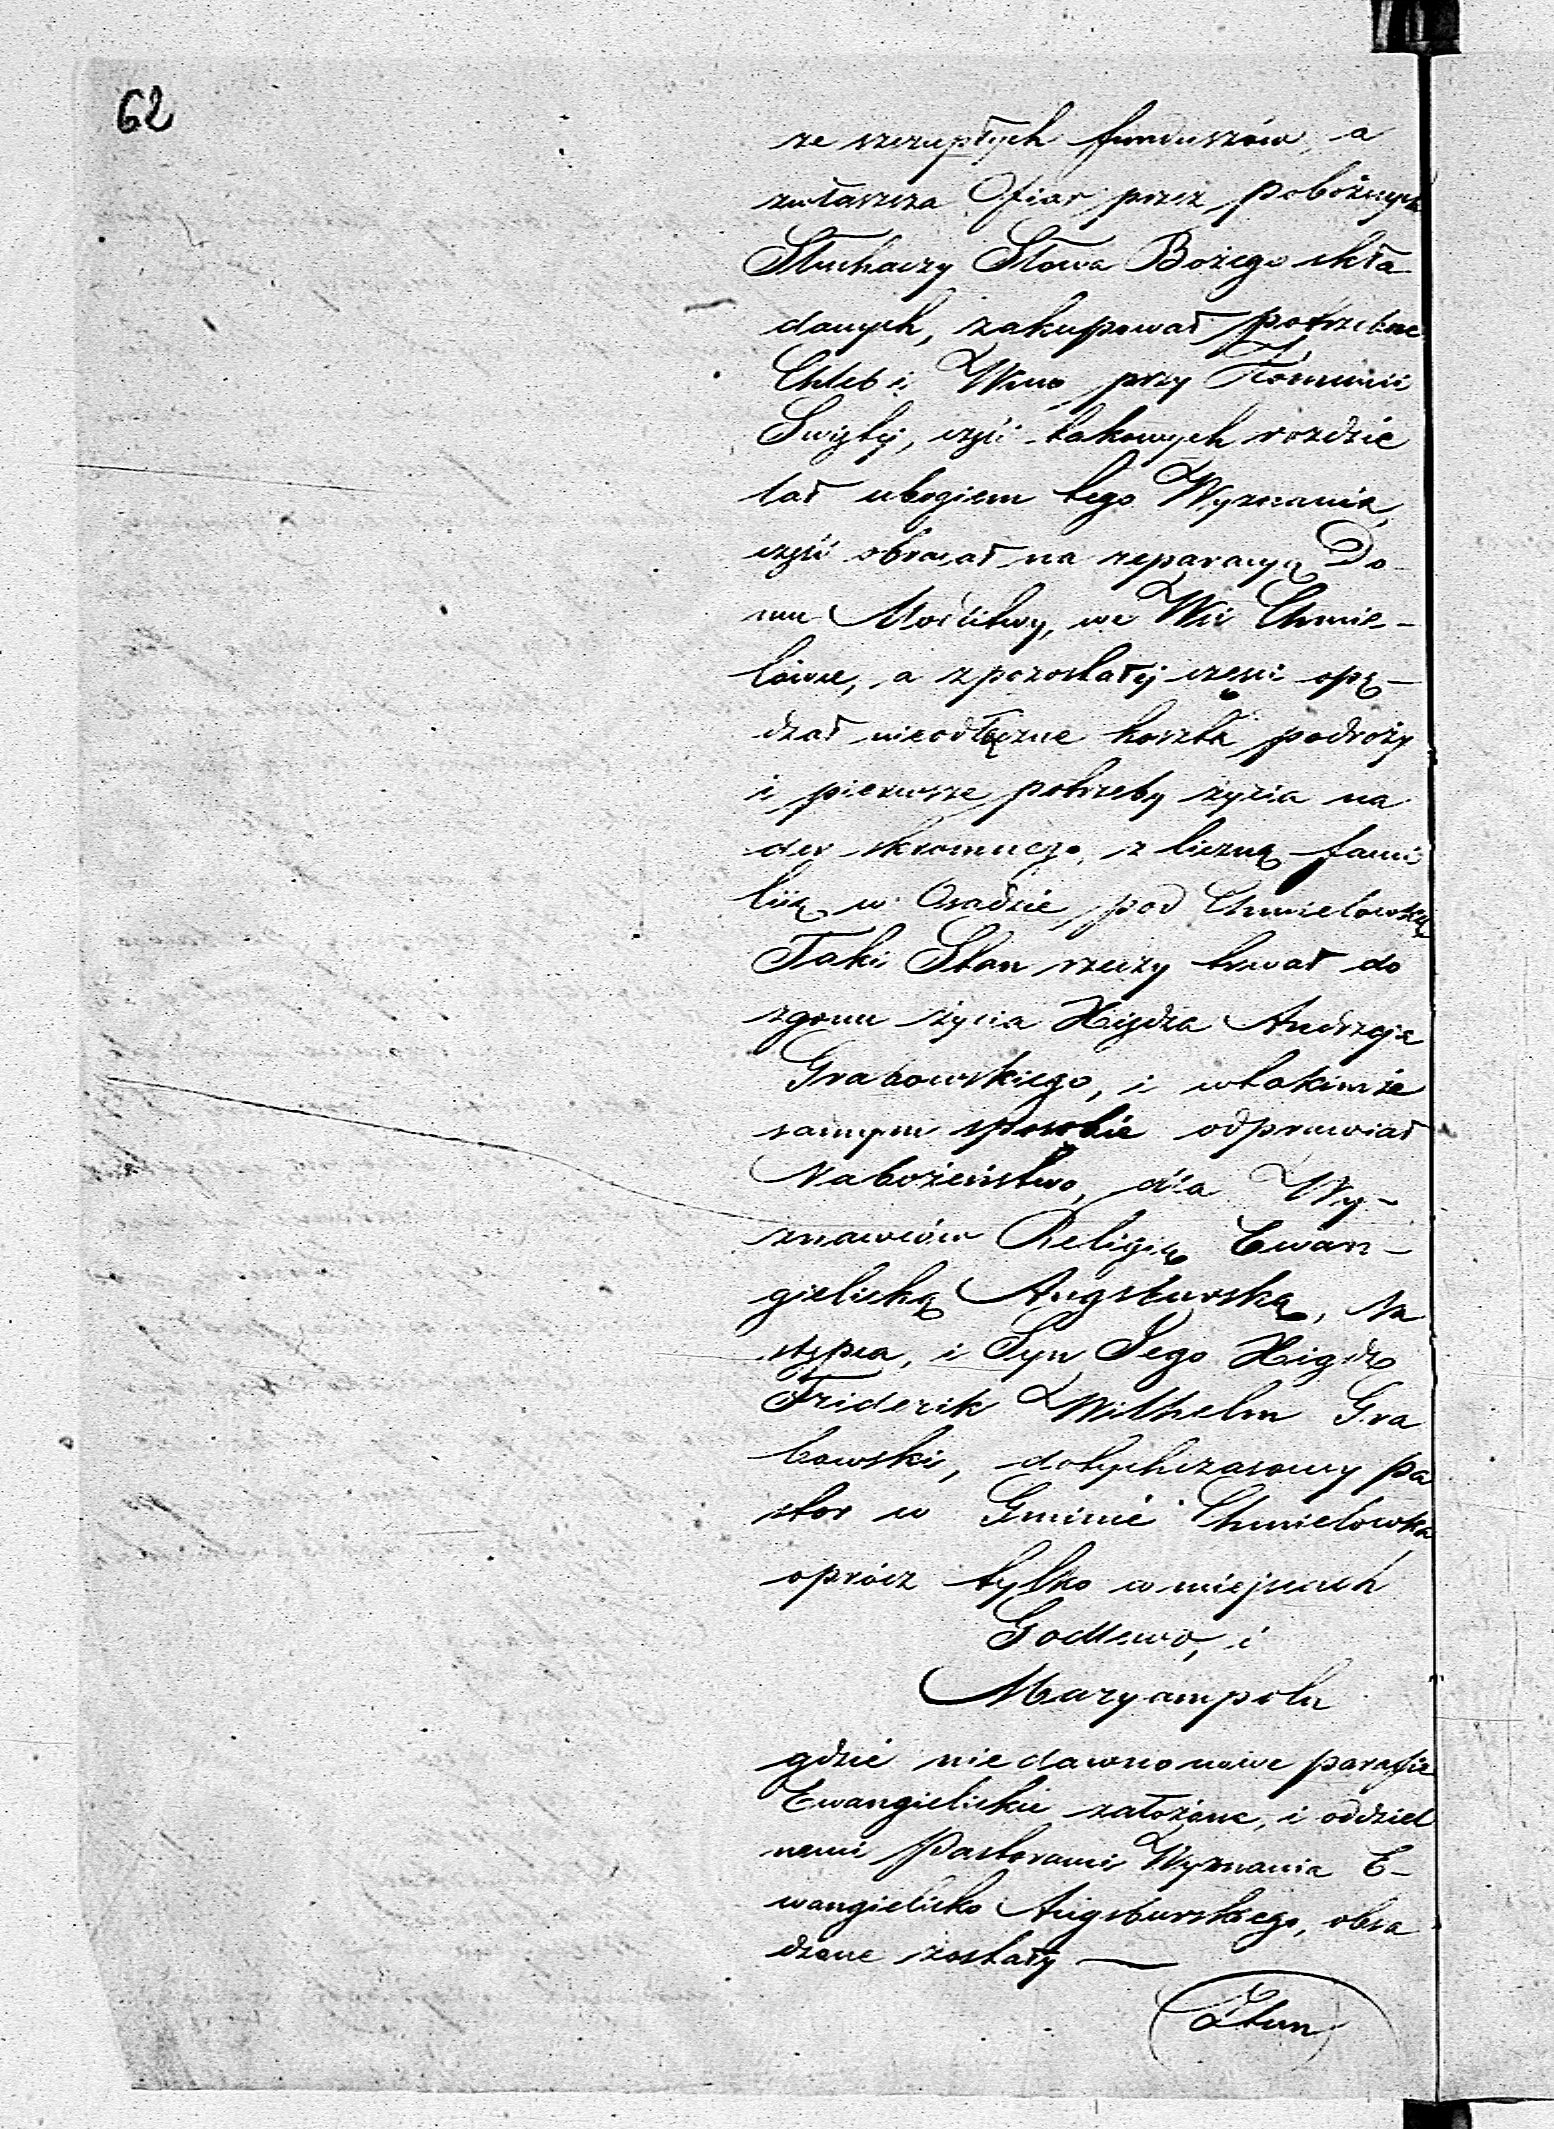 62
ze szczupłych funduszów, a
zwłaszcza Ofiar przez pobożnych
Słuchaczy Słowa Bożego skła
danych, zakupował potrzebne
Chleb i Wino przy Komunii
Swiętej, część takowych rozdzie
lał ubogiem tego Wyznania,
część obracał na reparacyą Do
mu Modlitwy, we Wsi Chmie-
lówce, a z pozostałej części opę-
dzał nieodłączne koszta podróży
i pierwsze potrzeby życia na
der skromnego, z liczną fami
lią w Osadzie pod Chmielowską
Taki Stan rzeczy trwał do
zgonu życia Xiędza Andrzeja
Grabowskiego, i w takimże
samym sposobie odprawiał
Nabożeństwo, dla Wy-
znawców Religią Ewan-
gielicką Augsburską, Na
stępca, i Syn Jego Xiądz
Friderik Wilhelm Gra
bowski, dotychczasowy Pa
stor w Gminie Chmielowka
oprócz tylko w miejscach
Godlewo, i
Maryampolu
gdzie niedawno nowe parafie
Ewangielickie założone, i oddziel
nemi Pastorami Wyznania E-
wangielicko Augsburskiego, obsa
dzone zostały —